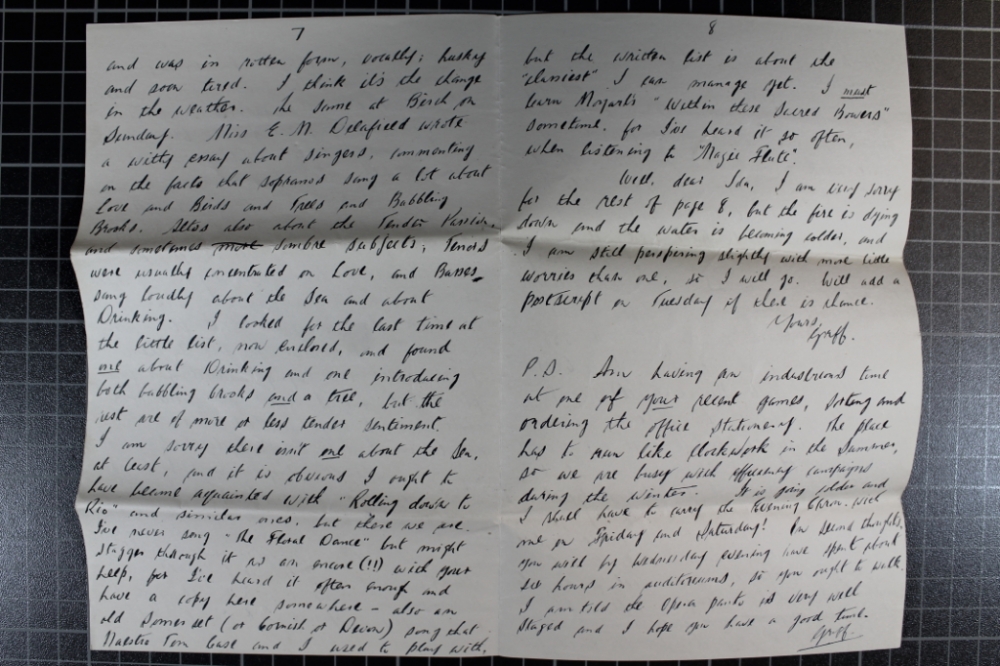 7
and was in rotten form, vocally; husky
and soon tired. I think it's the change
in the weather. The same at Birch on
Sunday. Miss E. M. Delafield wrote
a witty essay about singers, commenting
on the facts that sopranos sang a lot about
Love and Birds and Trees and Babbling
Brooks. Altos also about the Tender Passion,
and sometimes more sombre subjects; Tenors
were usually concentrated on Love, and Basses
sang loudly about the Sea and about
Drinking. I looked for the last time at
the little list, now enclosed, and found
one about Drinking and one introducing
both babbling brooks and a tree, but the
rest are of more or less tender sentiment.
I am sorry there isn't one about the Sea,
at least, and it is obvious I ought to
have become acquainted with "Rolling down to
Rio" and similar ones, but there we are.
I've never sung "The Floral Dance" but might
stagger through it as an encore (!!) with your
help, for I've heard it often enough and
have a copy here somewhere - also an
old Somerset (or Cornish or Devon) song that
Maestro Tom Case and I used to play with,
8
but the written list is about the
"classiest" I can manage yet. I must
learn Mozart's "Within these Sacred Bowers"
sometime, for I've heard it so often,
when listening to "Magic Flute".
Well, dear I am very sorry
for the rest of page 8, but the fire is dying
down and the water is becoming colder, and
I am still perspiring slightly with more little
worries than one, so I will go. Will add a
postscript on Tuesday if there is chance.
Yours,
Griff.
P.S. Am having an industrious time
at one of your recent games, sorting and
ordering the office stationery. The place
has to run like clockwork in the Summer,
so we are busy with efficiency campaigns
during the winter. It is going colder and
I shall have to carry the Evening Chron. with
me on Friday and Saturday! On second thoughts,
you will by Wednesday evening have spent about
six hours in auditoriums, so you ought to walk.
I am told the Opera panto is very well
staged and I hope you have a good time.
Griff.